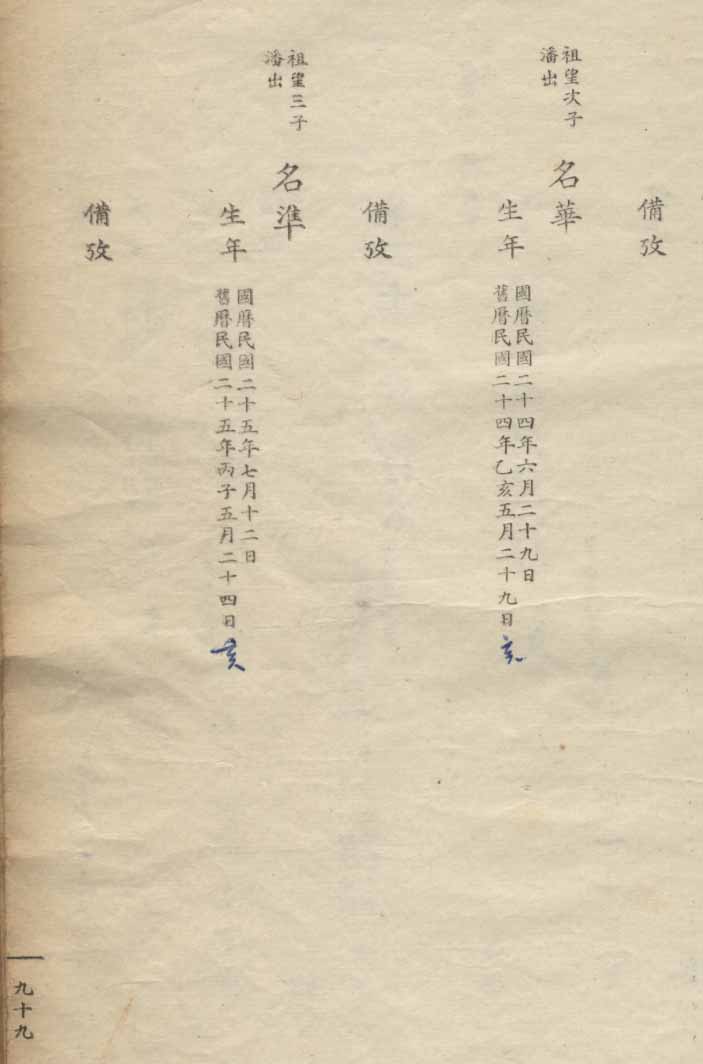 備攷
祖望次子
潘出
名華
生年
國曆民國二十四年六月二十九日
舊曆民國二十四年乙亥五月二十九日亥
備攷
祖望三子
潘出
名準
生年
國曆民國二十五年七月十二日
舊曆民國二十五年丙子五月二十四日亥
備攷
九十九